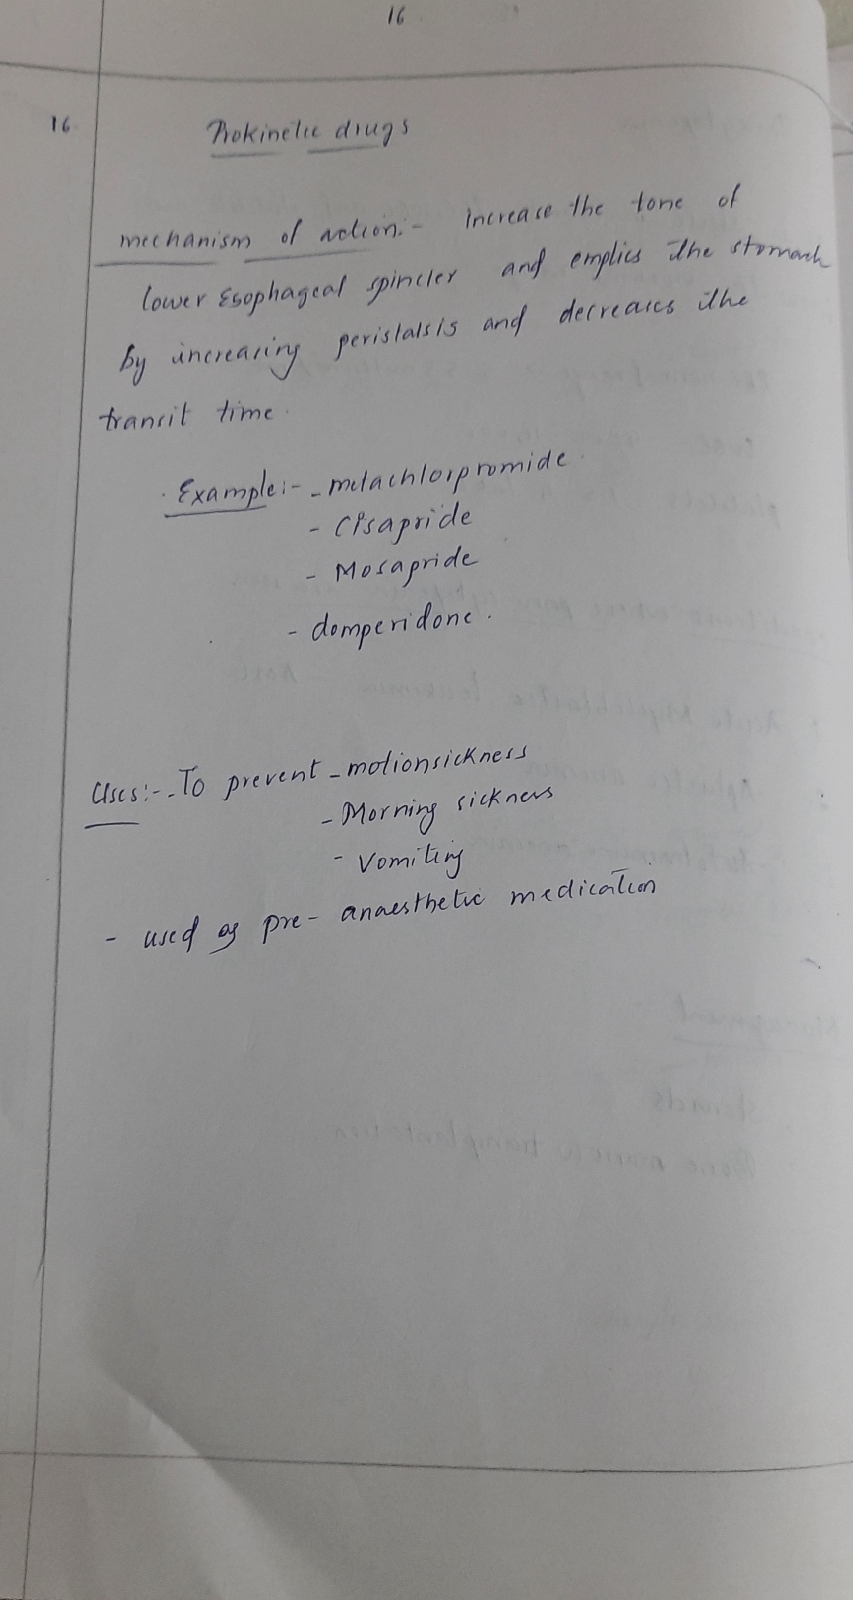 16
16. Prokinetic drugs
mechanism of action:- increase the tone of
lower Esophageal spincter and empties the stomach
by increasing peristalsis and decreases the
transit time.
Example:- - metachlorpromide.
- Cisapride
- Mosapride
- domperidone.
Uses:- - To prevent - motionsickness
- Morning sickness
- Vomiting
- used as pre-anaesthetic medication